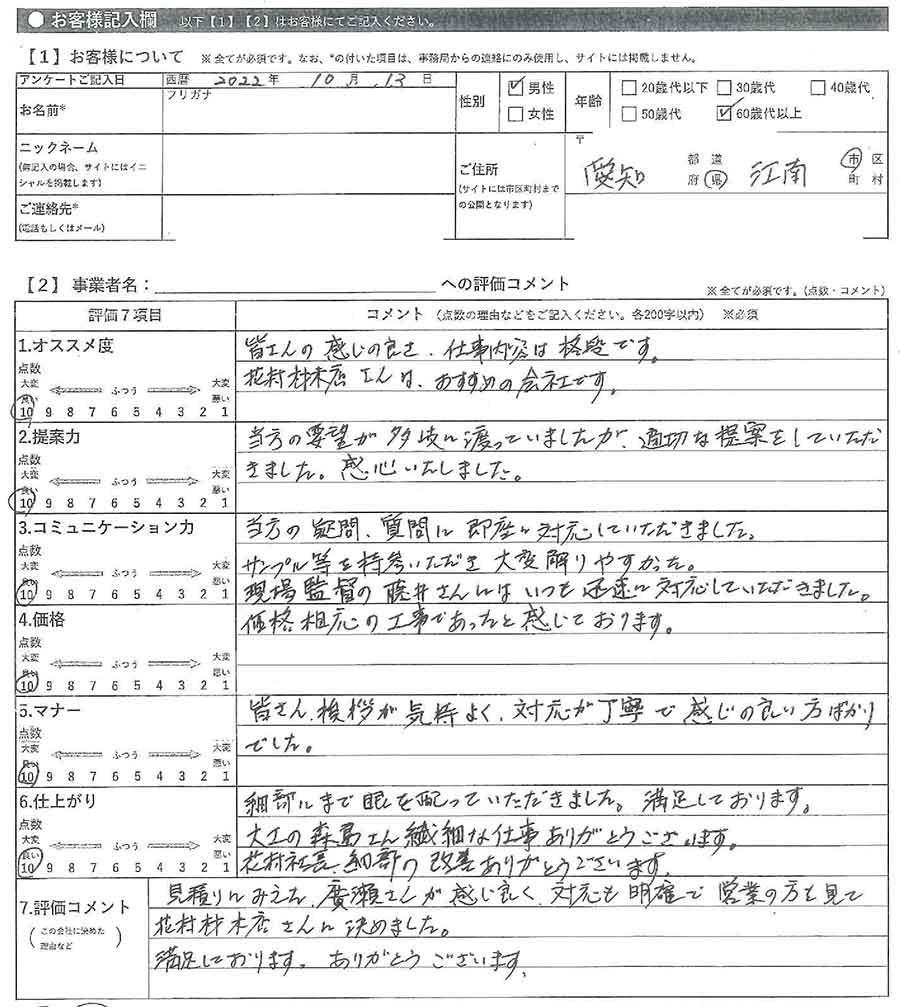 ● お客様記入欄 以下【1】【2】はお客様にてご記入ください。
【1】お客様について ※全てが必須です。なお、*の付いた項目は、事務局からの連絡にのみ使用し、サイトには掲載しません。
アンケートご記入日 西暦 2022 年 10 月 13 日
お名前* フリガナ
性別 男性 女性
年齢 20歳代以下 30歳代 40歳代 50歳代 60歳代以上
ニックネーム
(無記入の場合、サイトにはイニ
シャルを掲載します)
ご連絡先*
(電話もしくはメール)
ご住所
(サイトには市区町村まで
の公開となります)
〒
愛知 都道府県 江南 市区町村
【2】事業者名: への評価コメント ※全てが必須です。(点数・コメント)
評価7項目 コメント (点数の理由などをご記入ください。各200字以内) ※必須
1.オススメ度
点数
大変 ふつう 大変
良い 悪い
10 9 8 7 6 5 4 3 2 1
皆さんの感じの良さ、仕事内容は格段です。
花村材木店さんは、おすすめの会社です。
2.提案力
点数
大変 ふつう 大変
良い 悪い
10 9 8 7 6 5 4 3 2 1
当方の要望が多岐に渡っていましたが、適切な提案をしていただ
きました。感心いたしました。
3.コミュニケーション力
点数
大変 ふつう 大変
良い 悪い
10 9 8 7 6 5 4 3 2 1
当方の疑問、質問に即座に対応していただきました。
サンプル等を持参いただき大変解りやすかった。
現場監督の藤井さんにはいつも迅速に対応していただきました。
4.価格
点数
大変 ふつう 大変
良い 悪い
10 9 8 7 6 5 4 3 2 1
価格相応の工事であったと感じております。
5.マナー
点数
大変 ふつう 大変
良い 悪い
10 9 8 7 6 5 4 3 2 1
皆さん、挨拶が気持よく、対応が丁寧で感じの良い方ばかり
でした。
6.仕上がり
点数
大変 ふつう 大変
良い 悪い
10 9 8 7 6 5 4 3 2 1
細部にまで眼を配っていただきました。満足しております。
大工の森島さん繊細な仕事ありがとうございます。
花村社長、細部の改善ありがとうございます。
7.評価コメント
(この会社に決めた
理由など)
見積りにみえた、廣瀬さんが感じ良く、対応も明確で営業の方を見て
花村材木店さんに決めました。
満足しております。ありがとうございます。